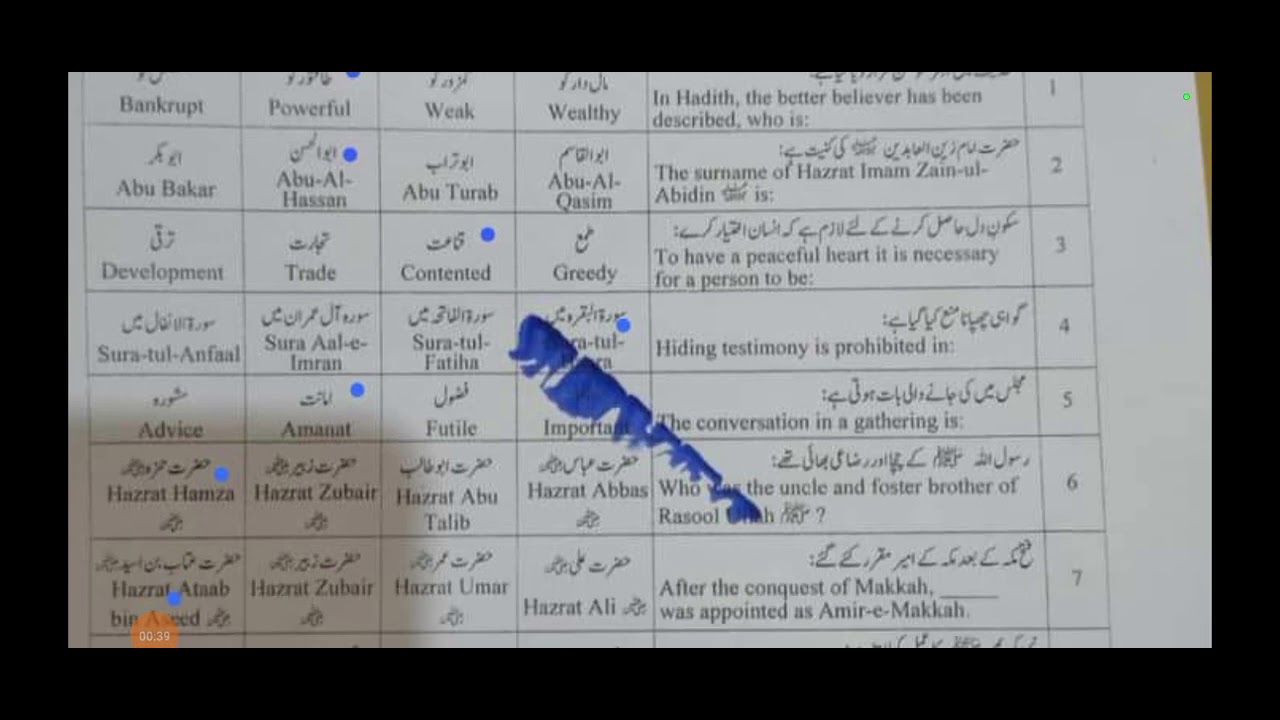 1
In Hadith, the better believer has been
described, who is:
مال دار کو
Wealthy
کمزور کو
Weak
طاقتور کو
Powerful
Bankrupt
2
حضرت امام زین العابدین کی کنیت ہے:
The surname of Hazrat Imam Zain-ul-
Abidin is:
ابوالقاسم
Abu-Al-
Qasim
ابوتراب
Abu Turab
ابوالحسن
Abu-Al-
Hassan
ابوبکر
Abu Bakar
3
سکونِ دل حاصل کرنے کے لئے لازم ہے کہ انسان اختیار کرے:
To have a peaceful heart it is necessary
for a person to be:
طمع
Greedy
قناعت
Contented
تجارت
Trade
ترقی
Development
4
گواہی چھپانا منع کیا گیا ہے:
Hiding testimony is prohibited in:
سورۃ البقرہ میں
سورۃ الفاتحہ میں
Sura-tul-
Fatiha
سورہ آل عمران میں
Sura Aal-e-
Imran
سورۃ الانفال میں
Sura-tul-Anfaal
5
مجلس میں کی جانے والی بات ہوتی ہے:
The conversation in a gathering is:
Important
فضول
Futile
امانت
Amanat
مشورہ
Advice
6
رسول اللہ ﷺ کے چچا اور رضاعی بھائی تھے:
Who was the uncle and foster brother of
Rasool Ullah ﷺ ?
حضرت عباسؓ
Hazrat Abbas
حضرت ابو طالب
Hazrat Abu
Talib
حضرت زبیرؓ
Hazrat Zubair
حضرت حمزہؓ
Hazrat Hamza
7
فتح مکہ کے بعد مکہ کے امیر مقرر کئے گئے:
After the conquest of Makkah, ______
was appointed as Amir-e-Makkah.
حضرت علیؓ
Hazrat Ali
حضرت عمرؓ
Hazrat Umar
حضرت زبیرؓ
Hazrat Zubair
حضرت عتاب بن اسیدؓ
Hazrat Ataab
bin Aseed
00:39